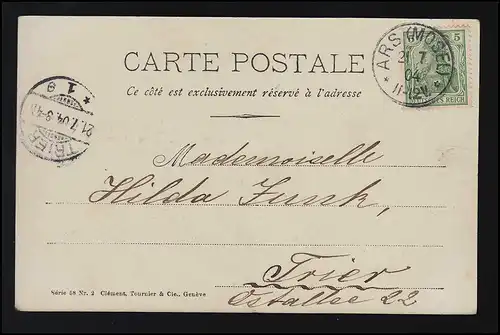 CARTE POSTALE
Ce côté est exclusivement réservé à l'adresse
ARS (MOSEL)
7
04
11-12V
5
DEUTSCHES REICH
TRIER
21.7.04.3-4
* 1 e
Mademoiselle
Hilda Funk,
Trier
Ostallee 22
Série 58 Nr. 2 Clément, Tournier & Cie., Genève